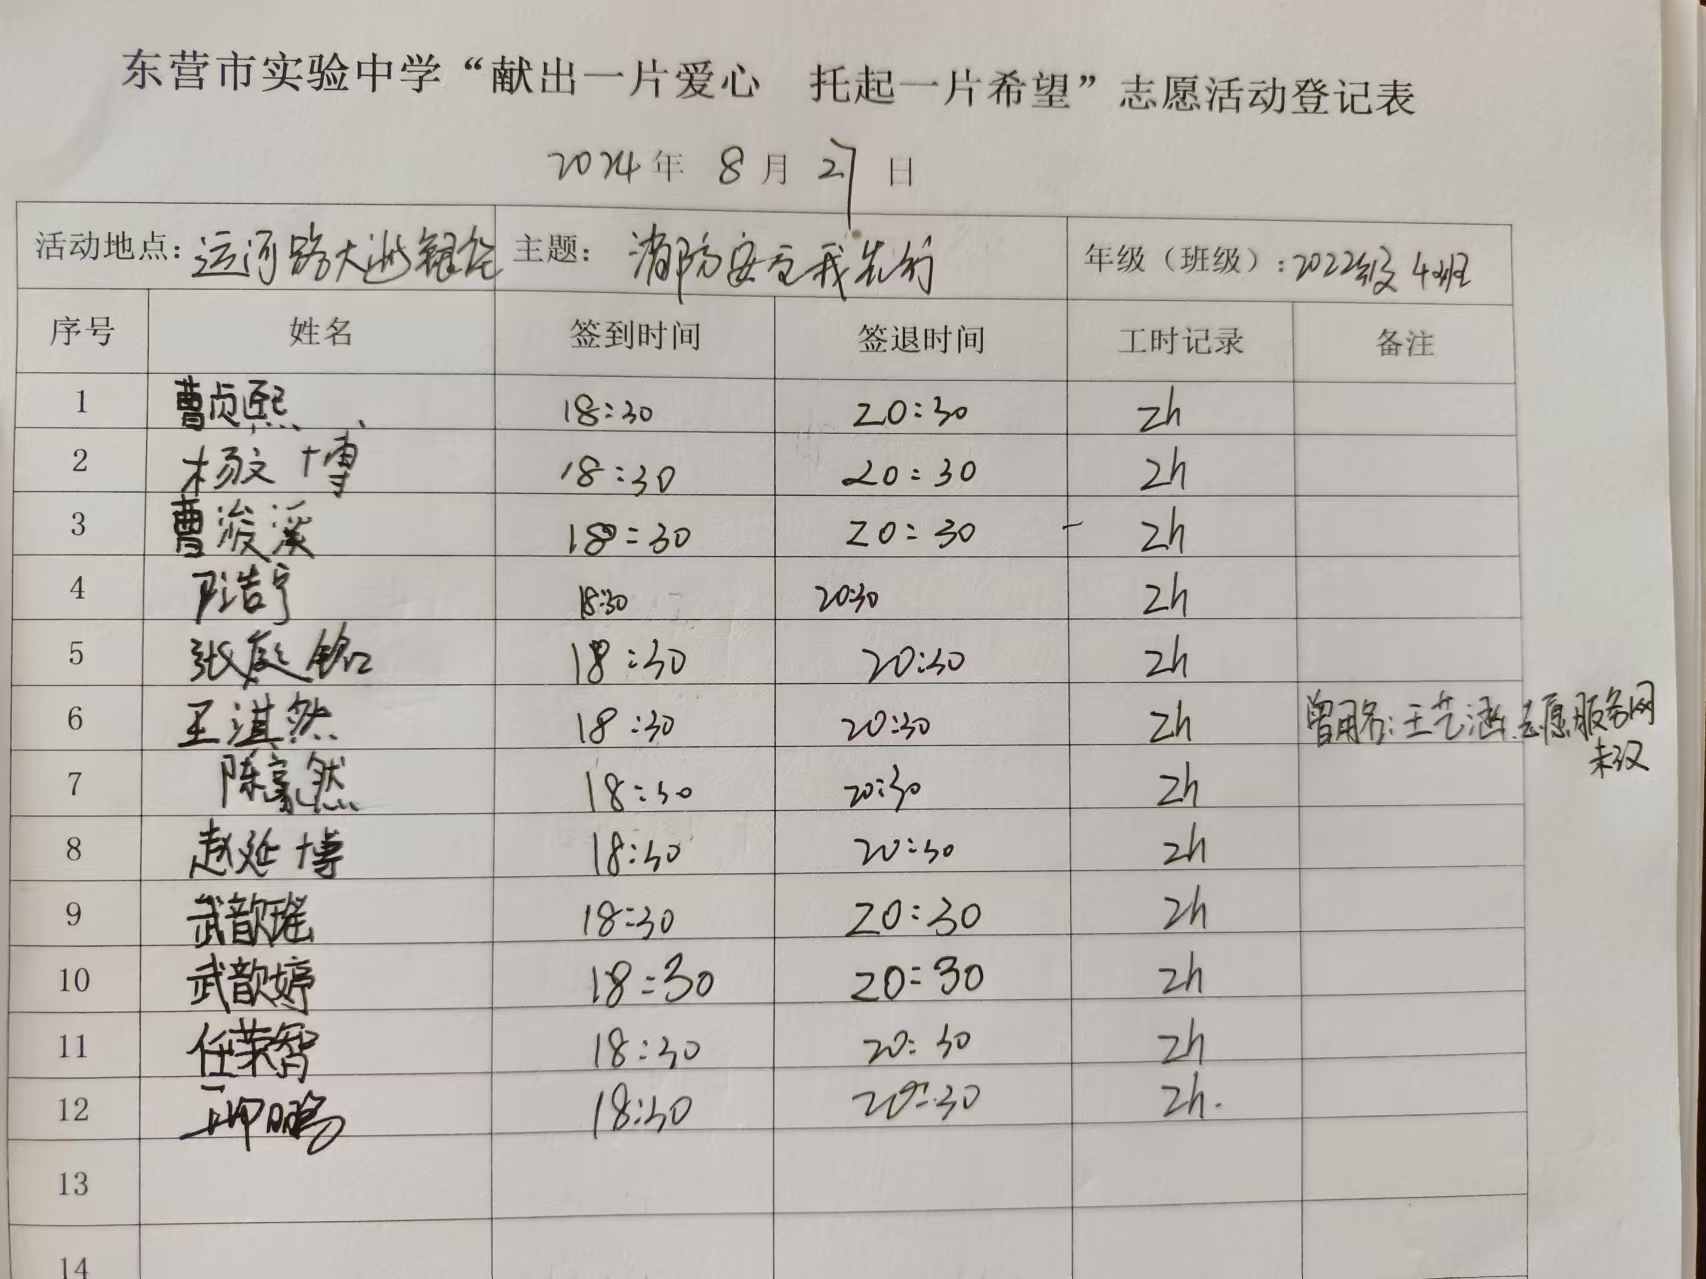 东营市实验中学“献出一片爱心 托起一片希望”志愿活动登记表
2024年 8月 27日
活动地点：运河路大 主题：消防安全我先行 年级（班级）：2022级4班
序号 姓名 签到时间 签退时间 工时记录 备注
1 曹贞熙 18:30 20:30 2h
2 杨文博 18:30 20:30 2h
3 曹浚溪 18:30 20:30 2h
4 浩宇 18:30 20:30 2h
5 张庭铭 18:30 20:30 2h
6 王淇然 18:30 20:30 2h 曾用名：王艺涵 志愿服务网
未改
7 陈豪然 18:30 20:30 2h
8 赵延博 18:30 20:30 2h
9 武歆瑶 18:30 20:30 2h
10 武歆婷 18:30 20:30 2h
11 任荣智 18:30 20:30 2h
12 18:30 20:30 2h.
13
14